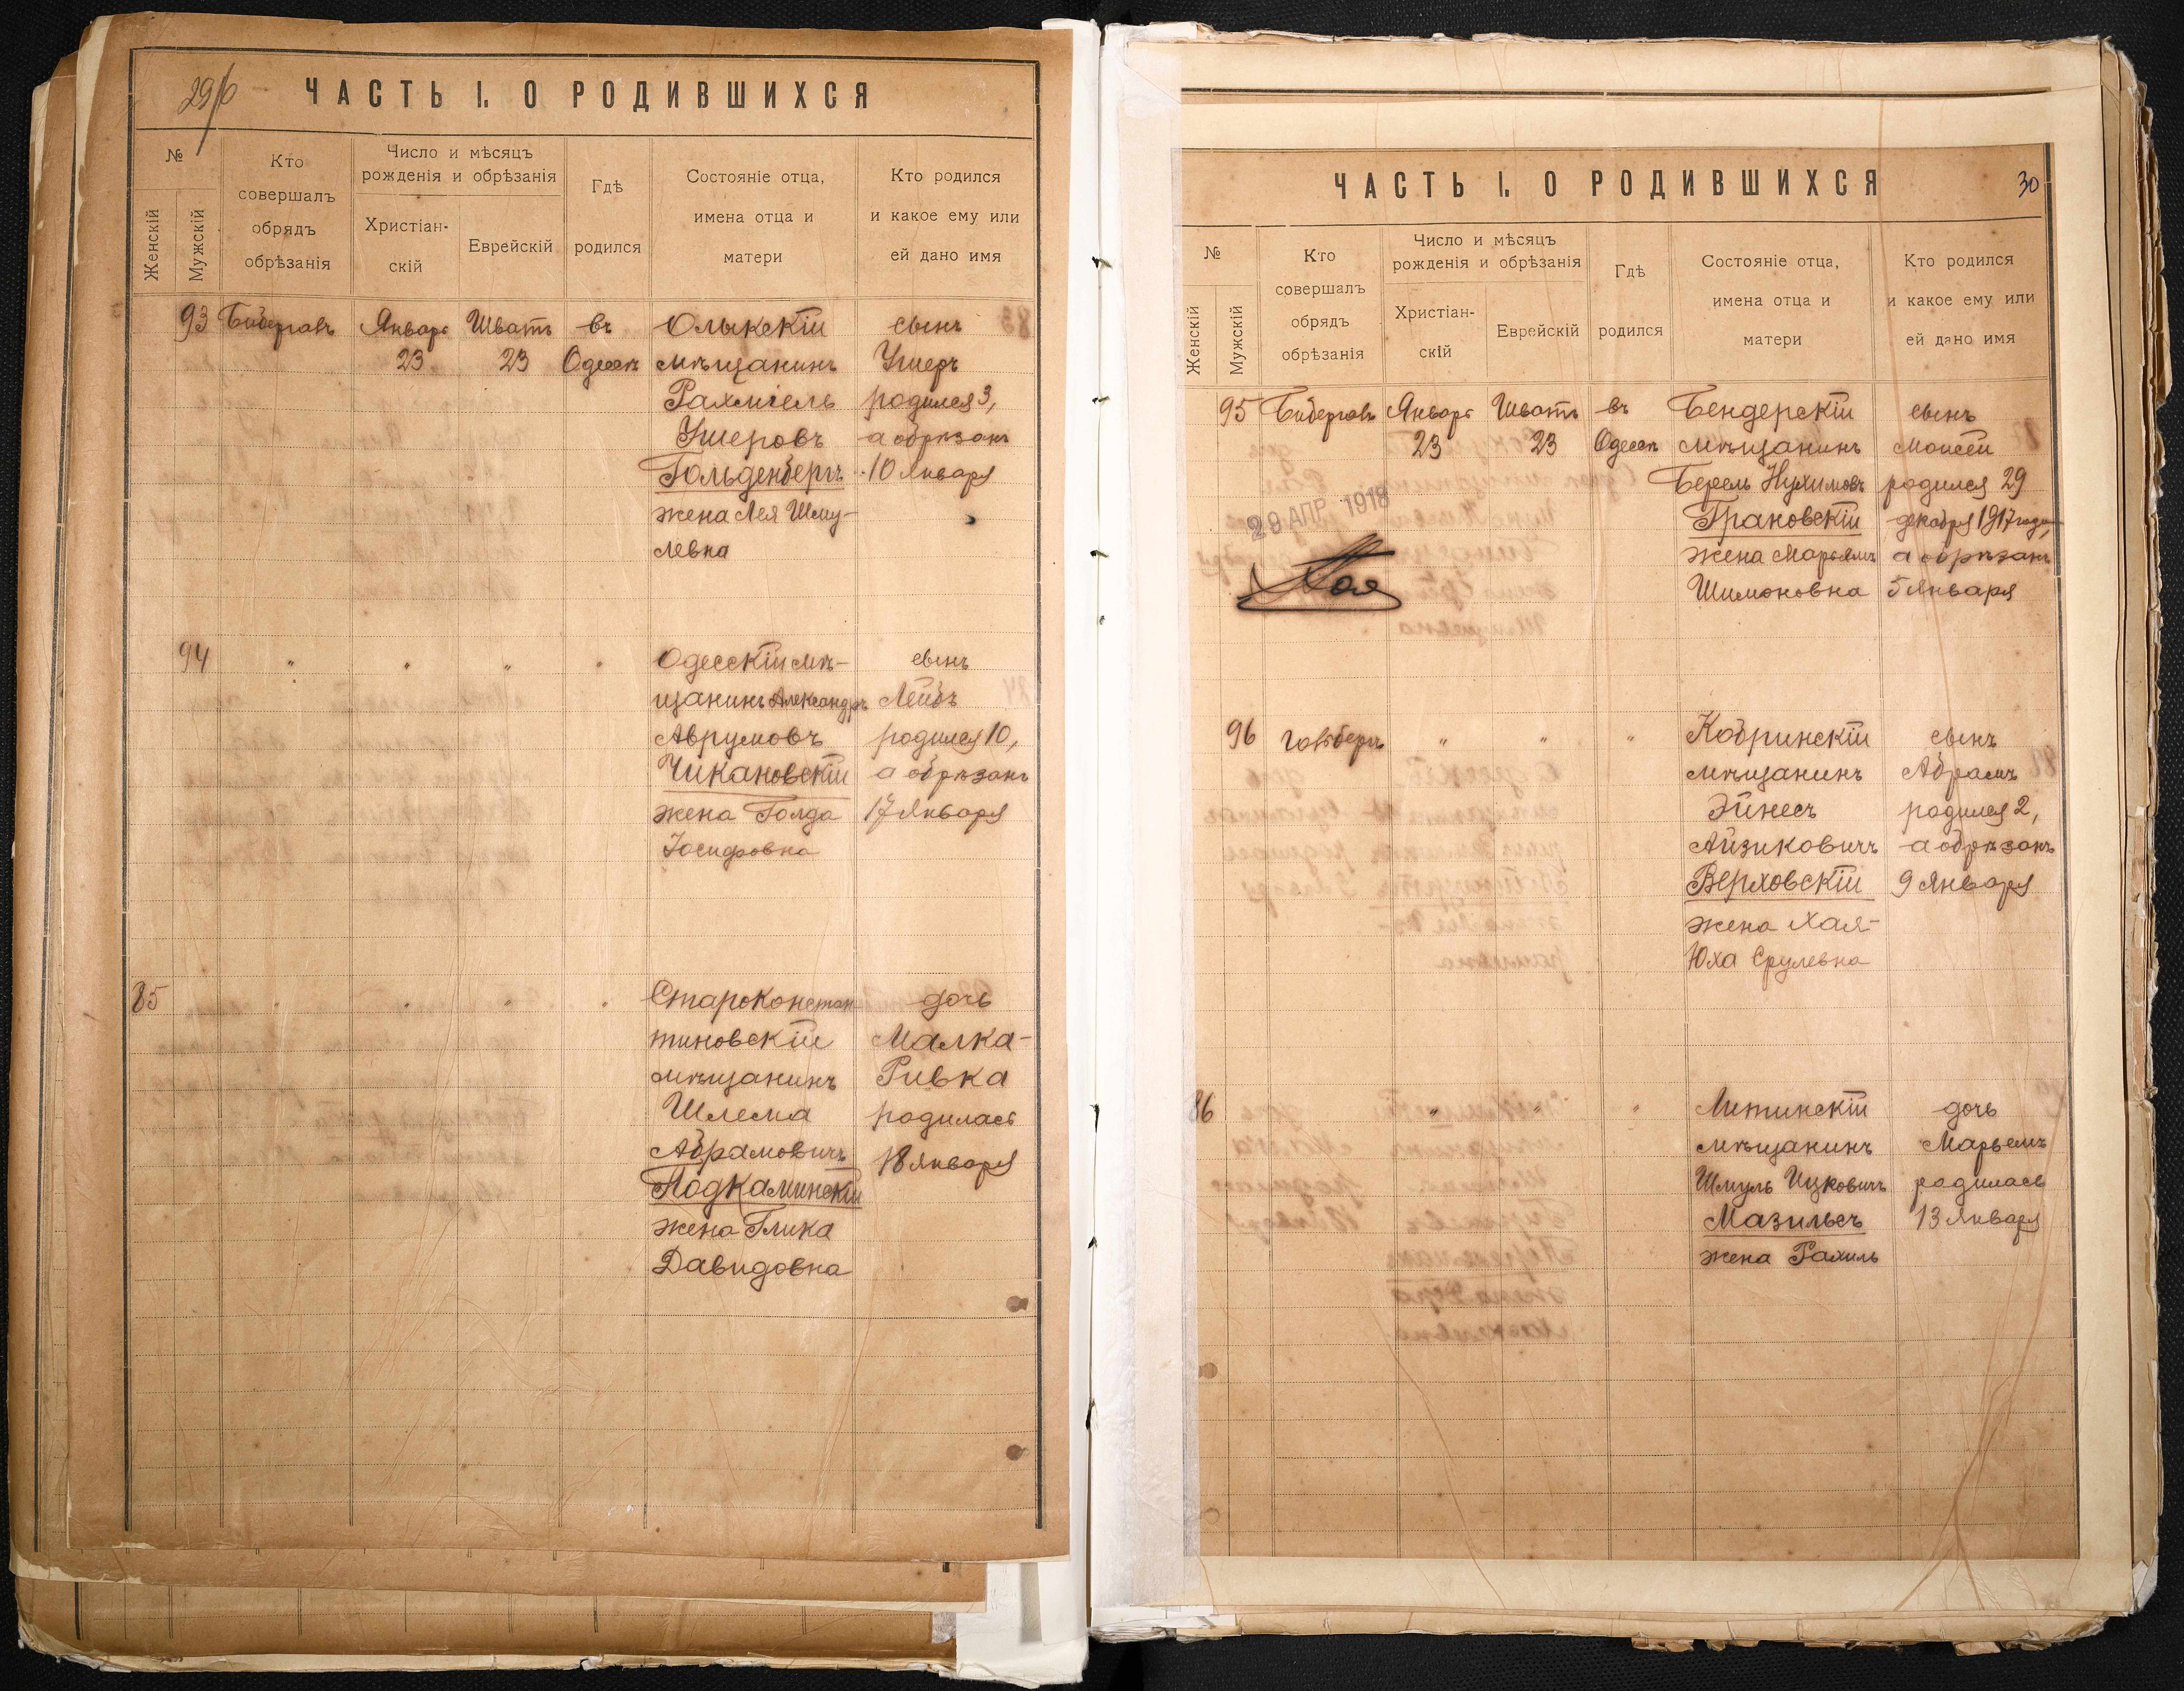 29/б
ЧАСТЬ I. О РОДИВШИХСЯ
№
Женскій
Мужскій
Кто
совершалъ
обрядъ
обрѣзанія
Число и мѣсяцъ
рожденія и обрѣзанія
Христіан-
скій
Еврейскій
Гдѣ
родился
Состояніе отца,
имена отца и
матери
Кто родился
и какое ему или
ей дано имя
93 Бибергалъ Январь Шватъ въ Олыкскій сынъ
23 23 Одессѣ мѣщанинъ Ушеръ
Рахміель родился 3,
Ушеровъ а обрѣзанъ
Гольденбергъ 10 Января
жена Лея Шму-
левна
94 " " " " Одесскій мѣ- сынъ
щанинъ Александръ Лейбъ
Аврумовъ родился 10,
Чикановскій а обрѣзанъ
жена Голда 17 Января
Іосифовна
85 " " " Староконстан- дочь
тиновскій Малка-
мѣщанинъ Ривка
Шлема родилась
Абрамовичъ 18 Января
Подкаминскій
жена Глика
Давидовна
ЧАСТЬ I. О РОДИВШИХСЯ
30
№
Женскій
Мужскій
Кто
совершалъ
обрядъ
обрѣзанія
Число и мѣсяцъ
рожденія и обрѣзанія
Христіан-
скій
Еврейскій
Гдѣ
родился
Состояніе отца,
имена отца и
матери
Кто родился
и какое ему или
ей дано имя
95 Бибергалъ Январь Шватъ въ Бендерскій сынъ
23 23 Одессѣ мѣщанинъ Моисей
Берель Нухимовъ родился 29
20 АПР 1918 Грановскій декабря 1917 года,
жена Марьямъ а обрѣзанъ
Шимоновна 5 Января
96 " " " Кобринскій сынъ
мѣщанинъ Абрамъ
Эйнесъ родился 2,
Айзиковичъ а обрѣзанъ
Верховскій 9 Января
жена Хая-
Юха Срулевна
86 " " " Литинскій дочь
мѣщанинъ Марьемъ
Шмуль Ицковичъ родилась
Мазильсъ 13 Января
жена Рахиль